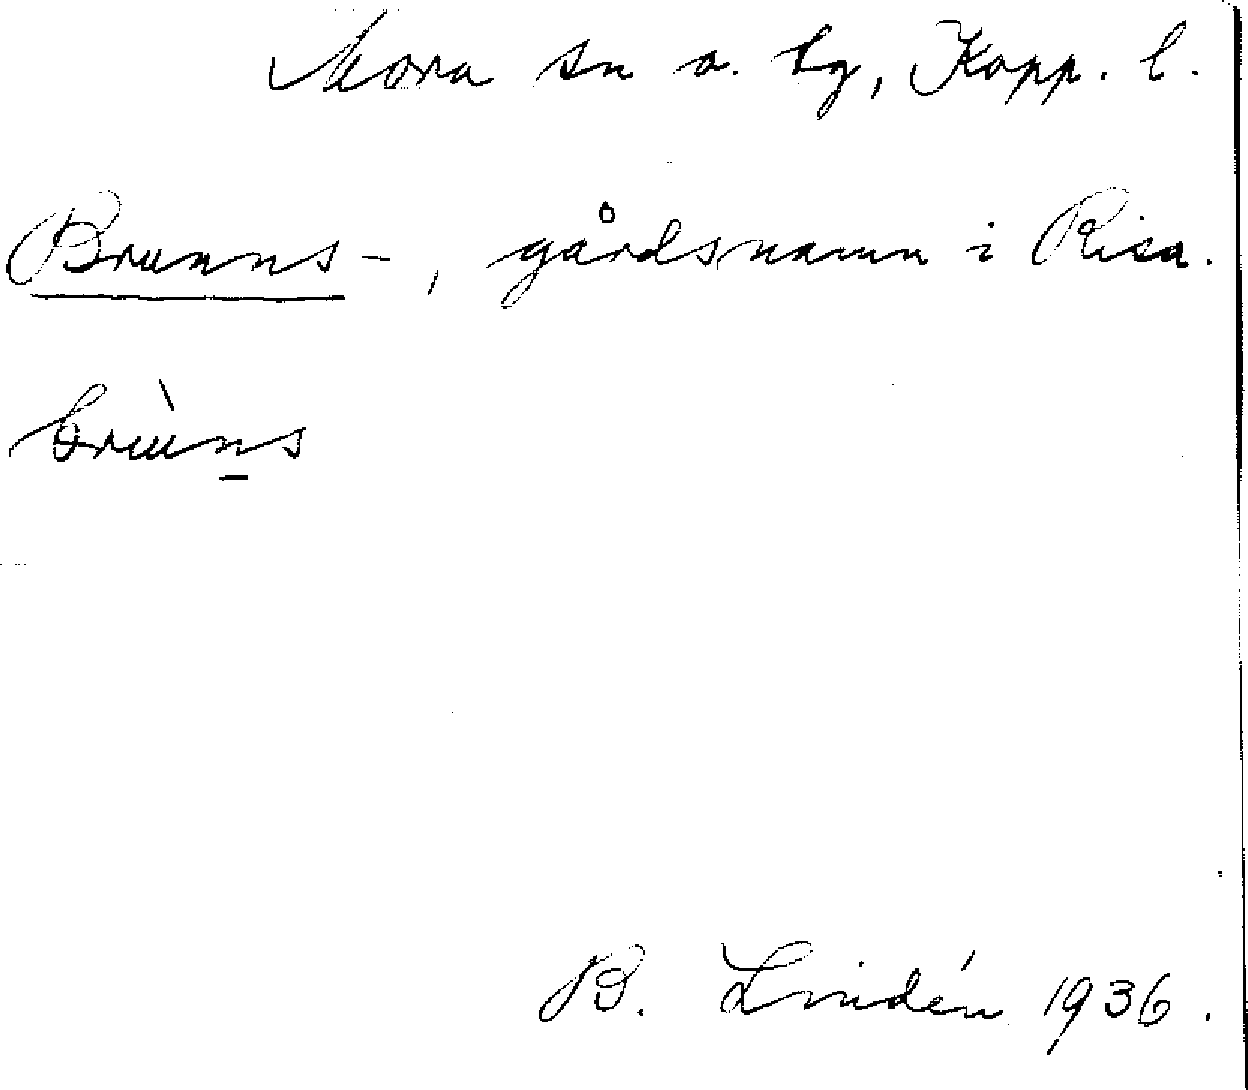 Mora sn o. tg, Kopp. l.
Brunns-, gårdsnamn i Risa.
brùn̲s
B. Lindén 1936.